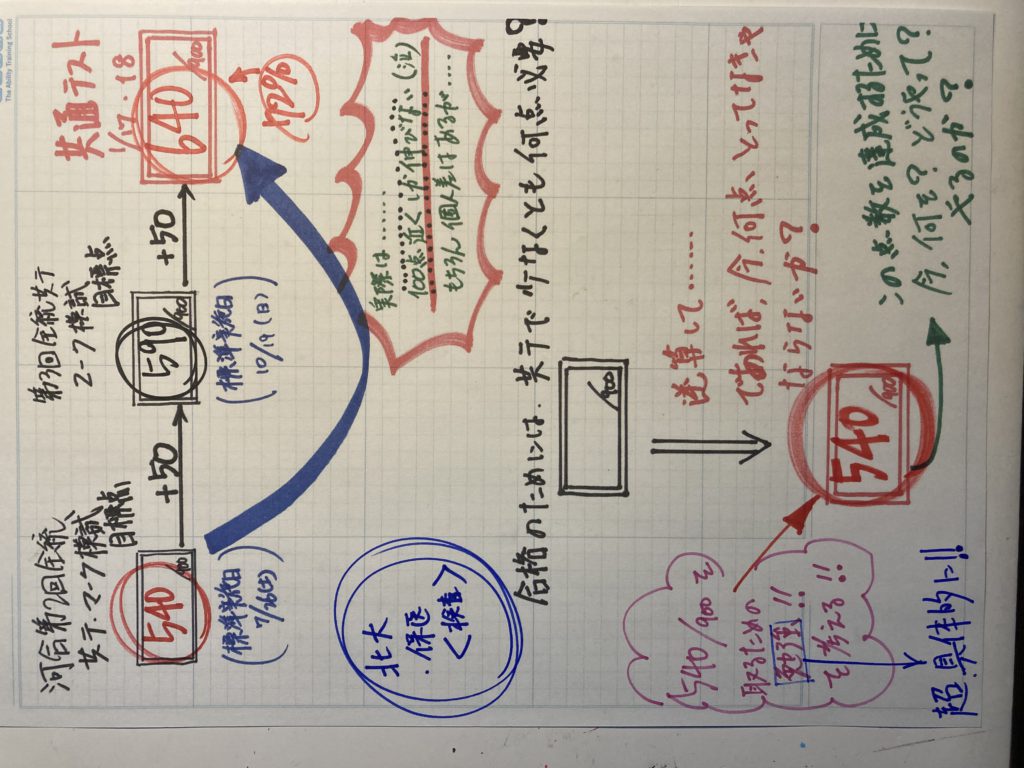 The Ability Training School
河合第2回全統
共テ・マーク模試
目標点
540/900
(標準実施日
7/26(土))
+50
第3回全統共テ
マーク模試
目標点
590/900
(標準実施日
10/19(日))
+50
共通テスト
1/17・18
640/900
72%
実際は……
100点近くしか伸びない(泣)
もちろん個人差はあるが……
北大
・保医
<検査>
合格のためには、共テで少なくとも何点必要?
/900
逆算して……
であれば、今、何点とってなきゃ
ならないか?
540/900
540/900を
取るための
勉強!!
を考える!!
超具体的に!!
この点数を達成するために
今、何を?どうやって?
やるのか?